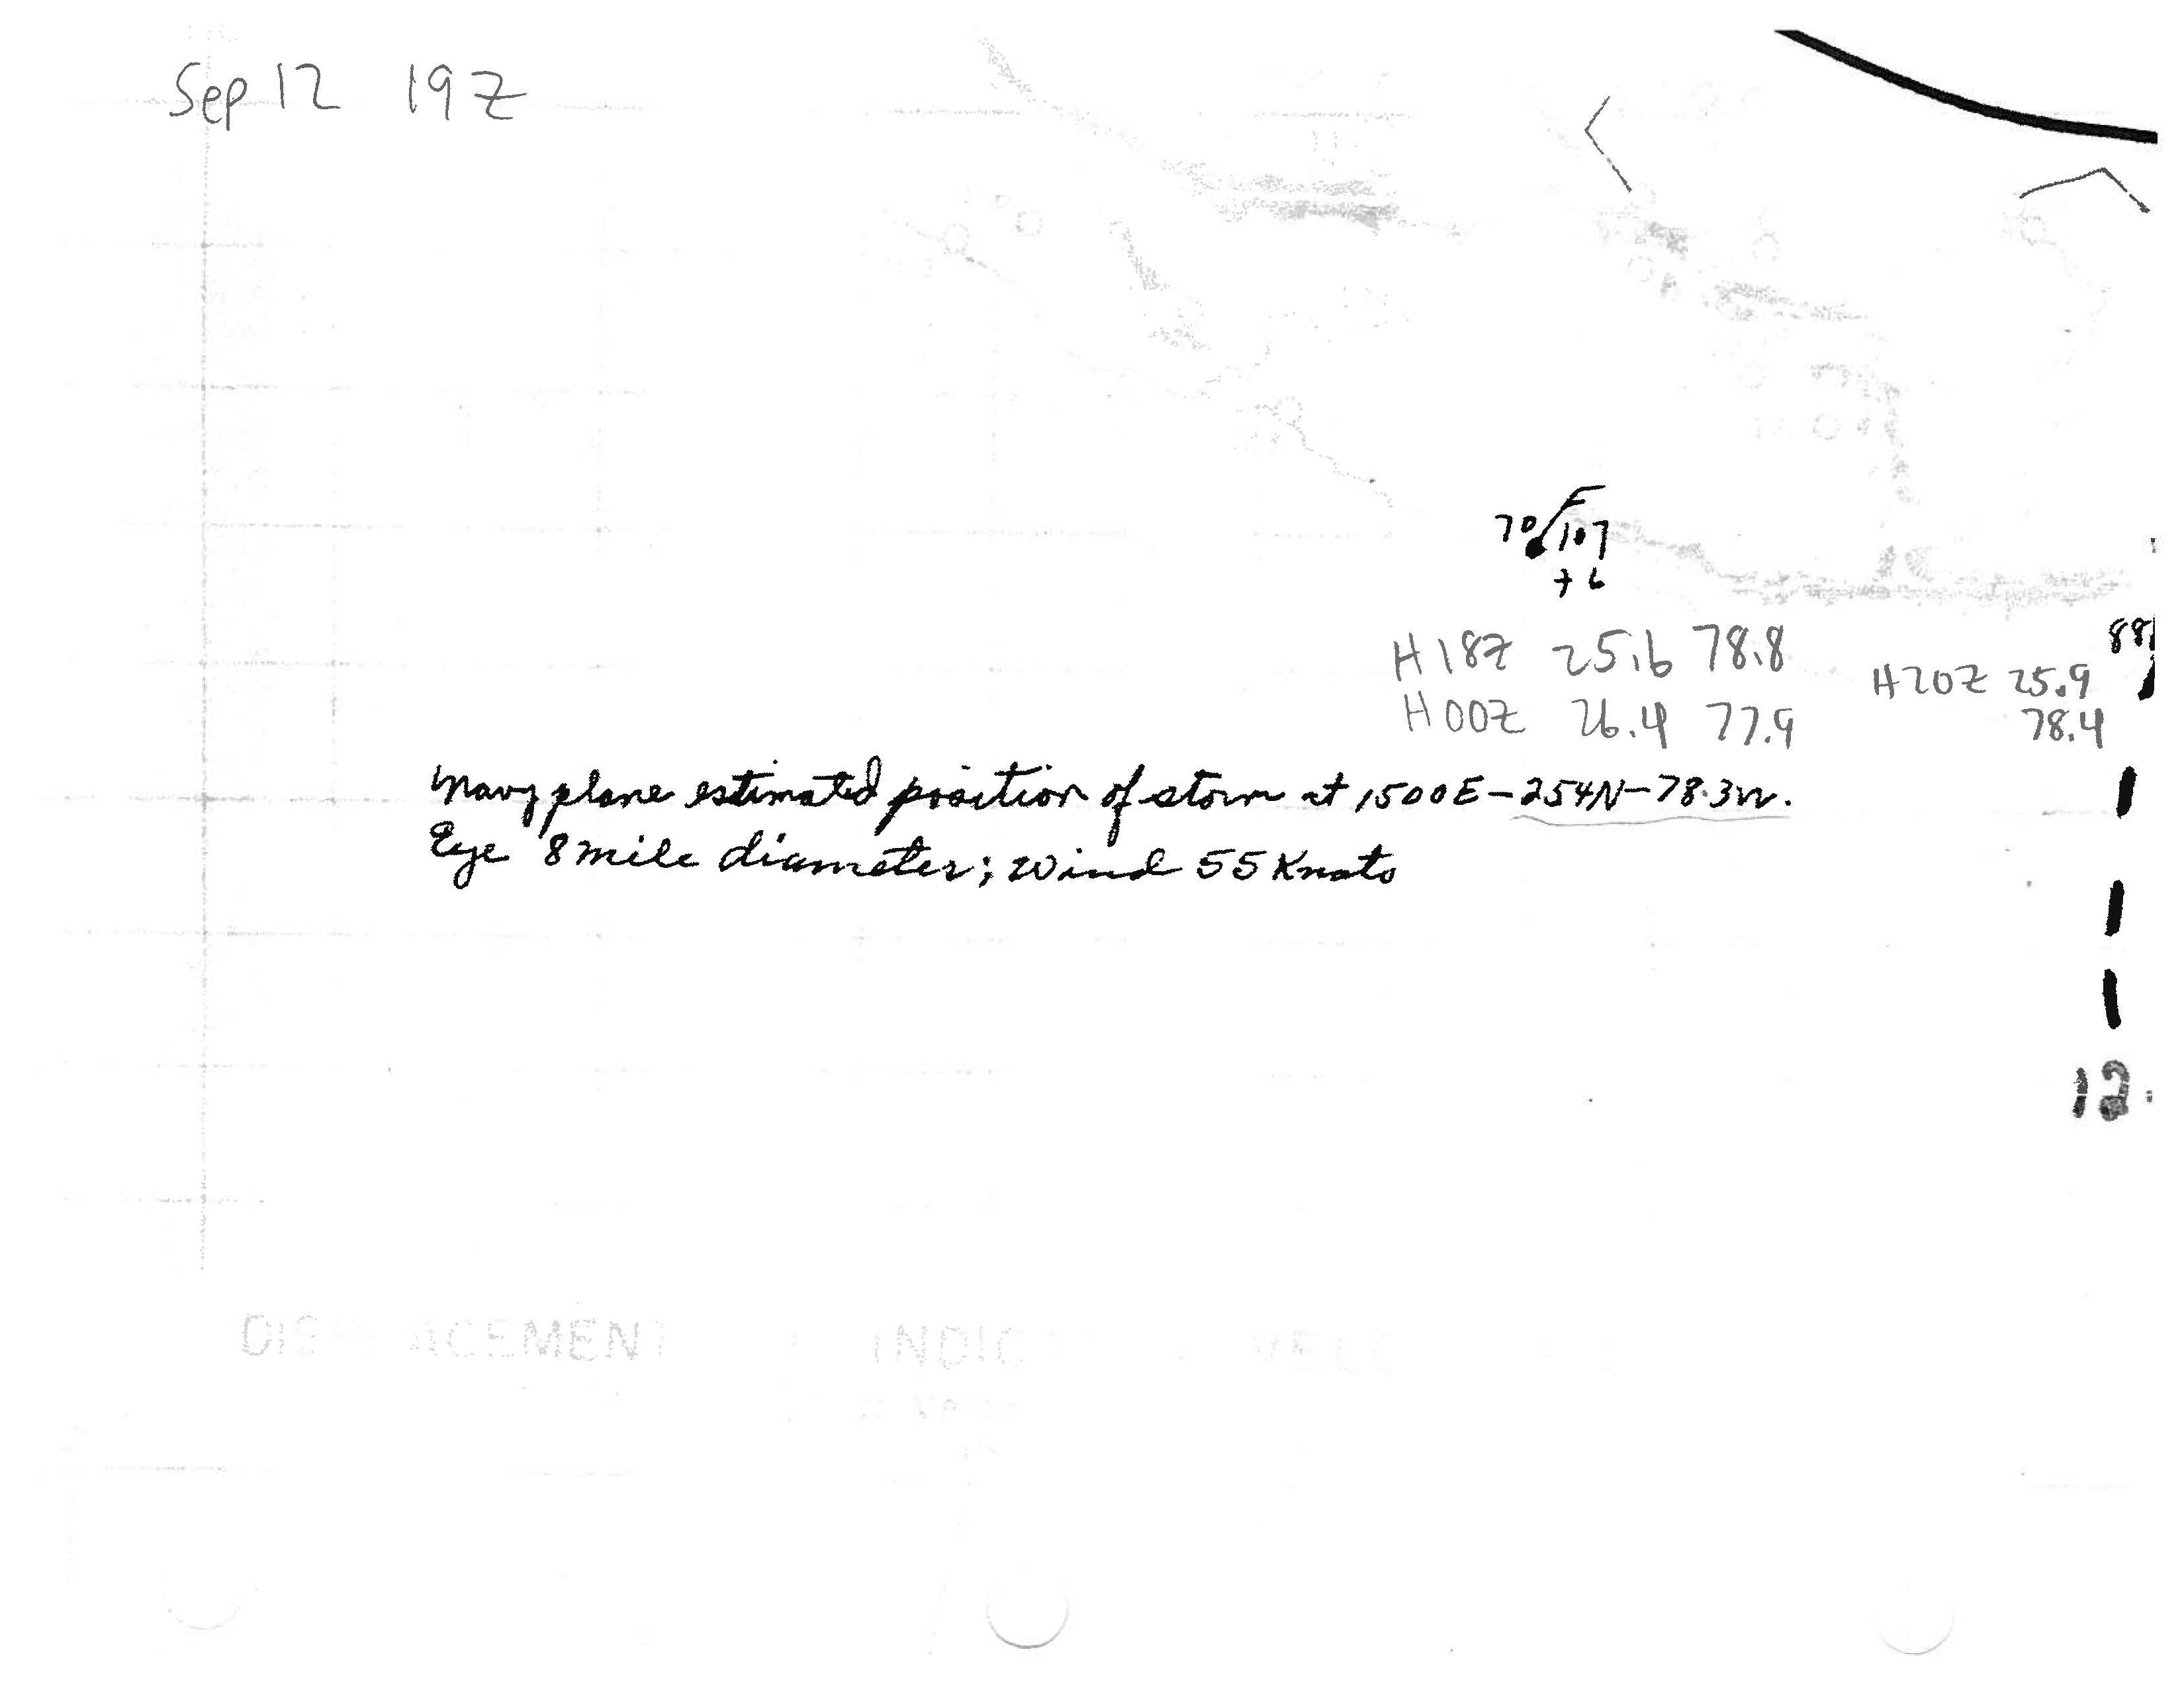 Sep 12 19Z
70 107
+6
H18Z 25.6 78.8
H20Z 25.9
88
H00Z 26.4 77.9
78.4
Navy plane estimated position of storm at 1500E-254N-78.3W.
Eye 8 mile diameter; Wind 55 Knots
12.